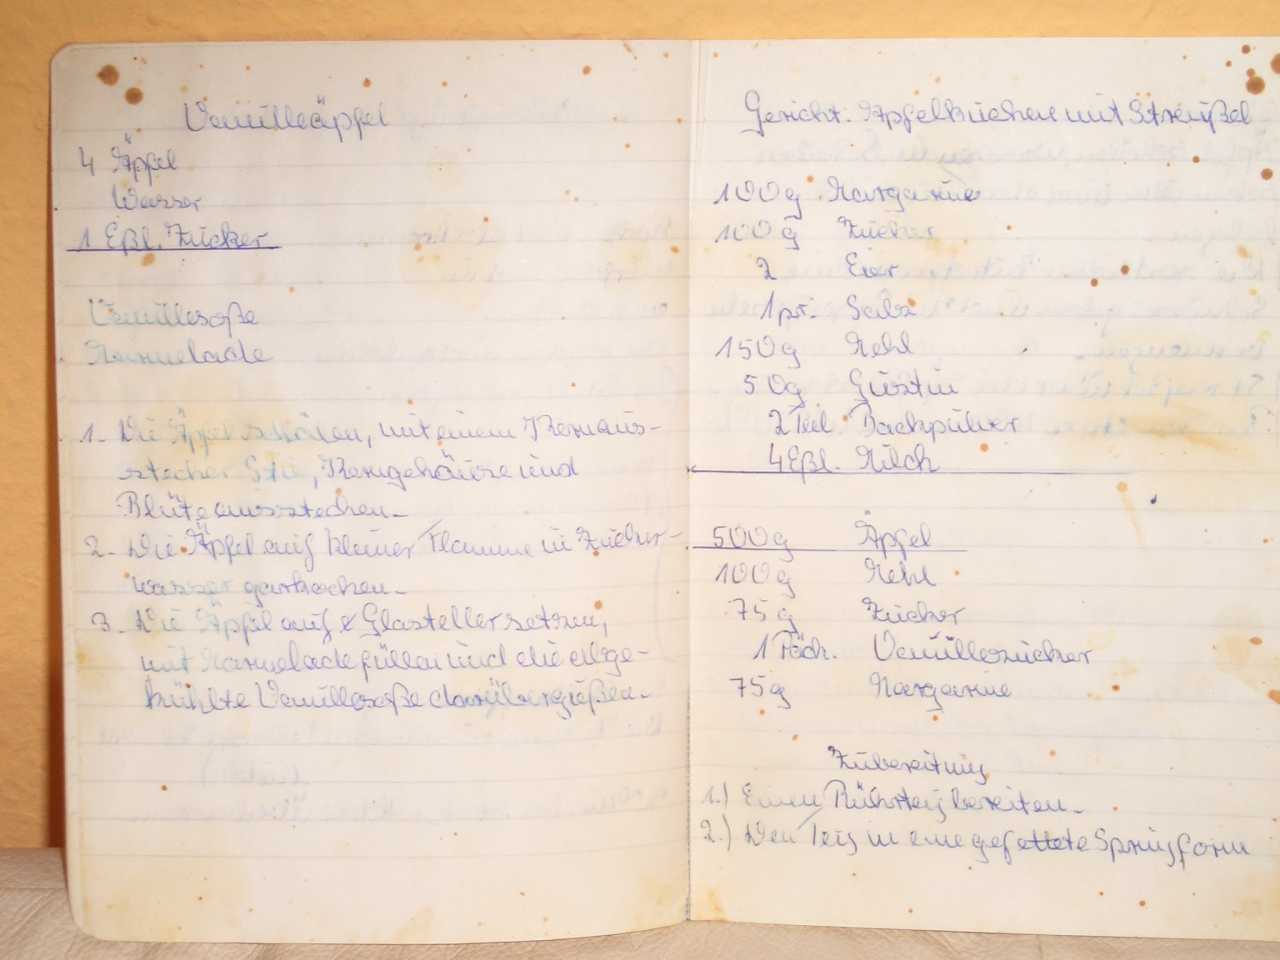 Vanilleäpfel
4 Äpfel
Wasser
1 Eßl. Zucker
Vanillesoße
Marmelade
1. Die Äpfel schälen, mit einem Kernaus-
stecher Stiel, Kerngehäuse und
Blüte ausstechen.
2. Die Äpfel auf kleiner Flamme in Zucker-
wasser garkochen.
3. Die Äpfel auf Glasteller setzen,
mit Marmelade füllen und die abge-
kühlte Vanillesoße darübergießen.
Gericht: Apfelkuchen mit Streußel
100g Margarine
100g Zucker
2 Eier
1 Pr. Salz
150g Mehl
50g Gustin
2 Teel. Backpulver
4 Eßl. Milch
500g Äpfel
100g Mehl
75g Zucker
1 Päch. Vanillezucker
75g Margarine
Zubereitung
1.) Einen Rührteig bereiten.
2.) Den Teig in eine gefettete Springform